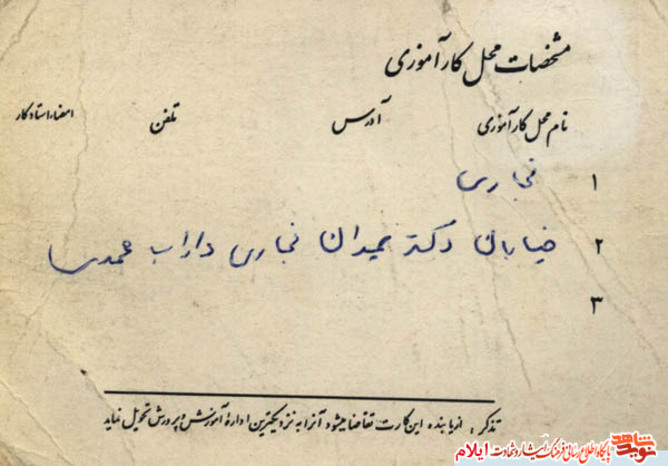 مشخصات محل کارآموزی
نام محل کارآموزی آدرس تلفن امضاء استاد کار
۱ نجاری
۲ خیابان دکتر نجاری داراب محمدی
۳
تذکر: از یابنده این کارت تقاضا میشود آنرا به نزدیکترین ادارهٔ آموزش و پرورش تحویل نماید
نوید شاهد
پایگاه اطلاع رسانی فرهنگ ایثار و شهادت ایلام